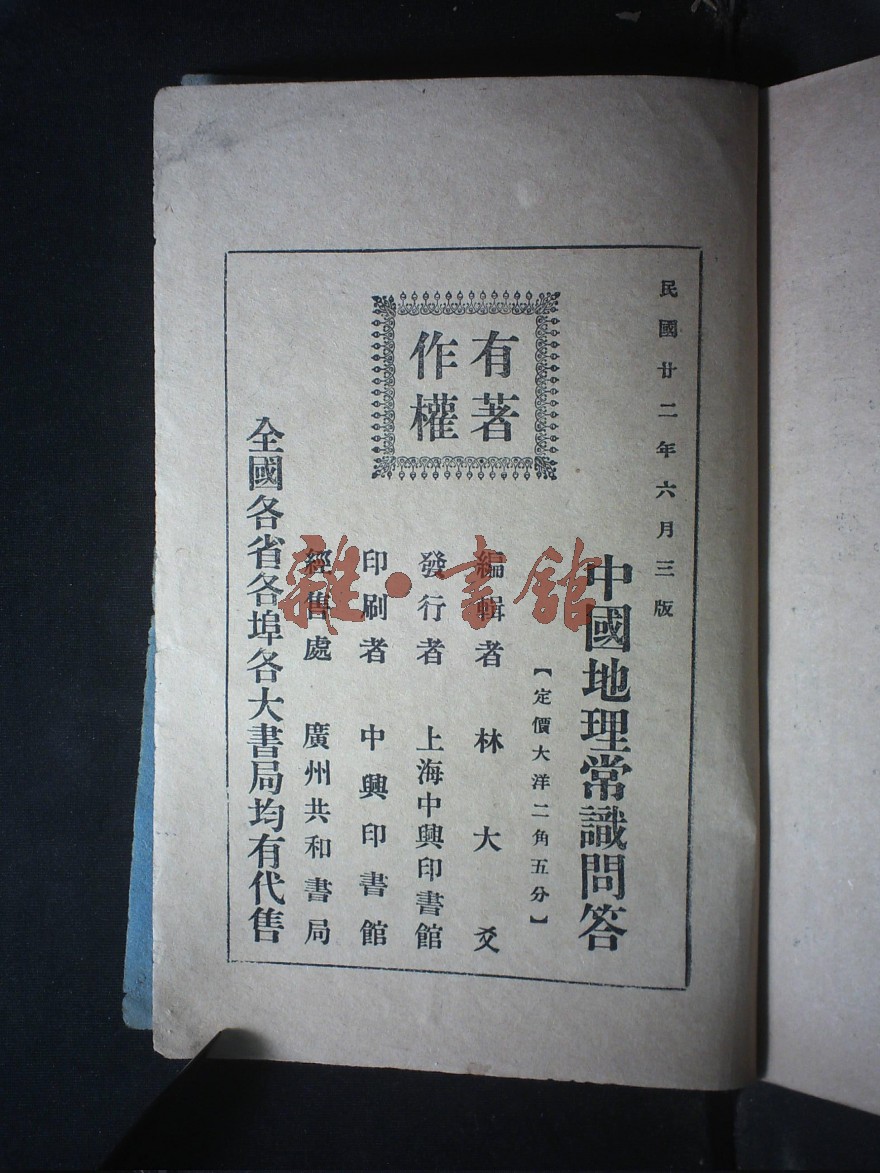 民國廿二年六月三版
中國地理常識問答
【定價大洋二角五分】
有著
作權
編輯者 林大爻
發行者 上海中興印書館
印刷者 中興印書館
經售處 廣州共和書局
全國各省各埠各大書局均有代售
雜·書館